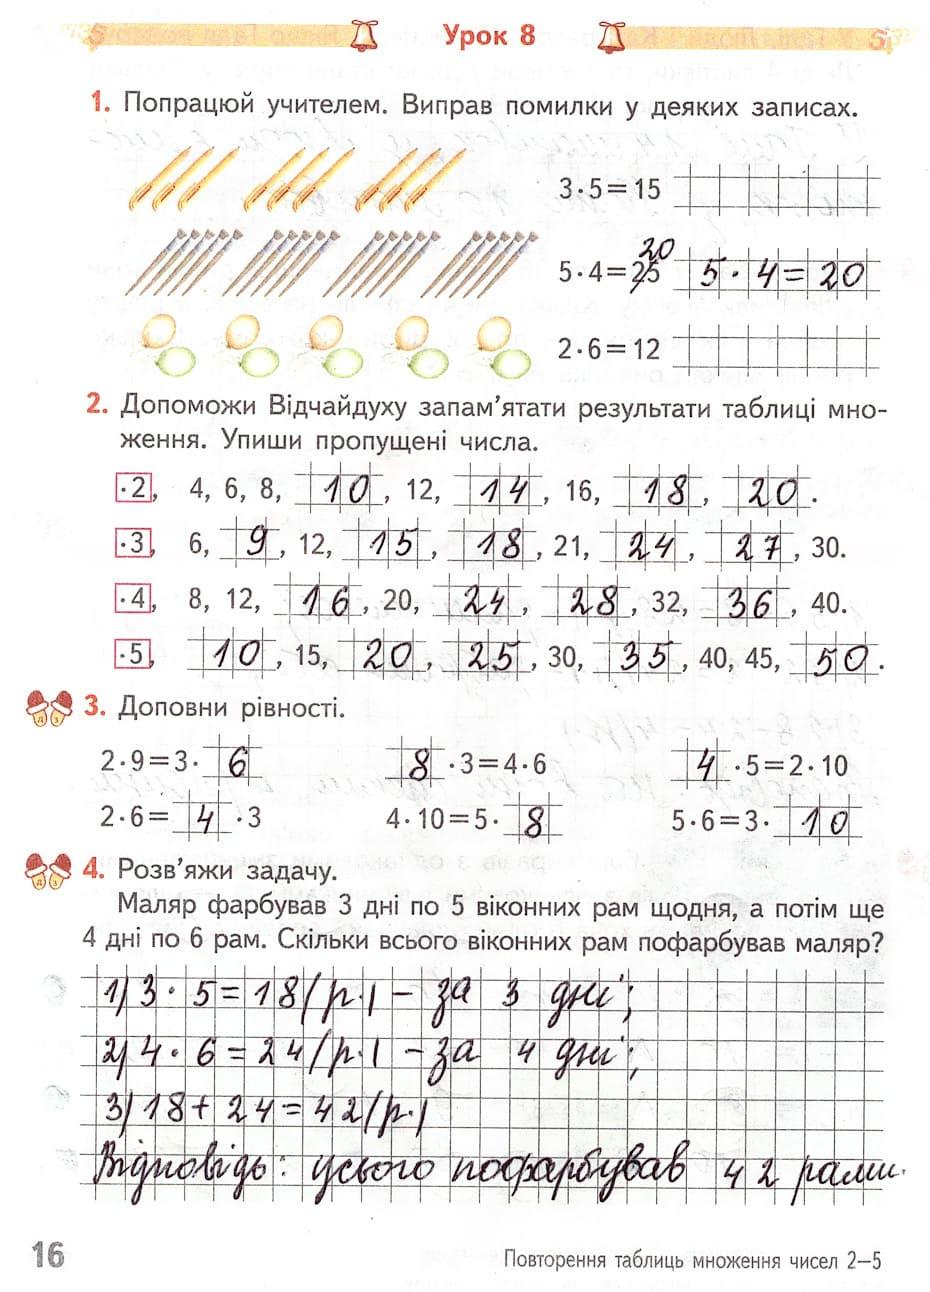 Урок 8
1. Попрацюй учителем. Виправ помилки у деяких записах.
3·5=15
20
5·4=25 5·4=20
2·6=12
2. Допоможи Відчайдуху запам'ятати результати таблиці мно-
ження. Упиши пропущені числа.
·2, 4, 6, 8, 10, 12, 14, 16, 18, 20.
·3, 6, 9, 12, 15, 18, 21, 24, 27, 30.
·4, 8, 12, 16, 20, 24, 28, 32, 36, 40.
·5, 10, 15, 20, 25, 30, 35, 40, 45, 50.
3. Доповни рівності.
2·9=3·6 8·3=4·6 4·5=2·10
2·6=4·3 4·10=5·8 5·6=3·10
4. Розв'яжи задачу.
Маляр фарбував 3 дні по 5 віконних рам щодня, а потім ще
4 дні по 6 рам. Скільки всього віконних рам пофарбував маляр?
1) 3·5=18(р.) – за 3 дні;
2) 4·6=24(р.) – за 4 дні;
3) 18+24=42(р.)
Відповідь: усього пофарбував 42 рами.
16
Повторення таблиць множення чисел 2–5